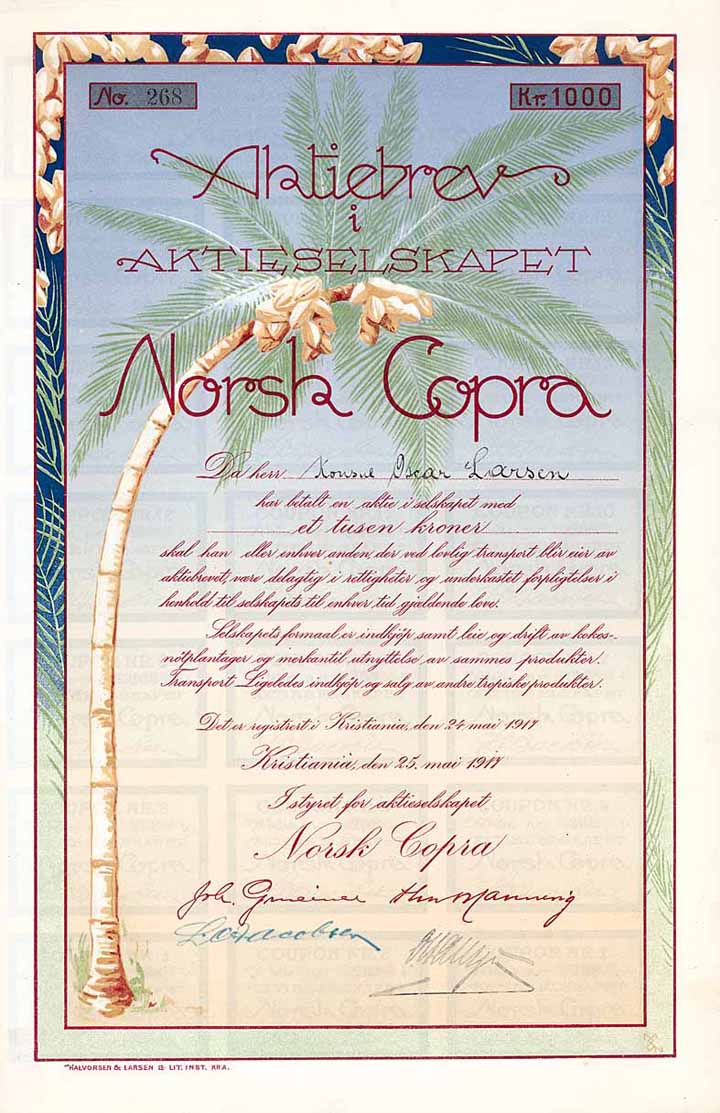 No. 268
Kr. 1000
Aktiebrev
i
AKTIESELSKAPET
Norsk Copra
Da herr Konsul Oscar Larsen
har betalt en aktie i selskapet med
et tusen kroner
skal han eller enhver anden, der ved lovlig transport blir eier av
aktiebrevet, være delagtig i rettigheter og underkastet forpligtelser i
henhold til selskapets til enhver tid gjældende love.
Selskapets formaal er indkjöp samt leie og drift av kokos-
nötplantager og merkantil utnyttelse av sammes produkter.
Transport Ligeledes indkjöp og salg av andre tropiske produkter.
Det er registrert i Kristiania, den 24 mai 1917
Kristiania, den 25. mai 1917
I styret for aktieselskapet
Norsk Copra
Joh.
HALVORSEN & LARSEN LIT. INST. KRA.